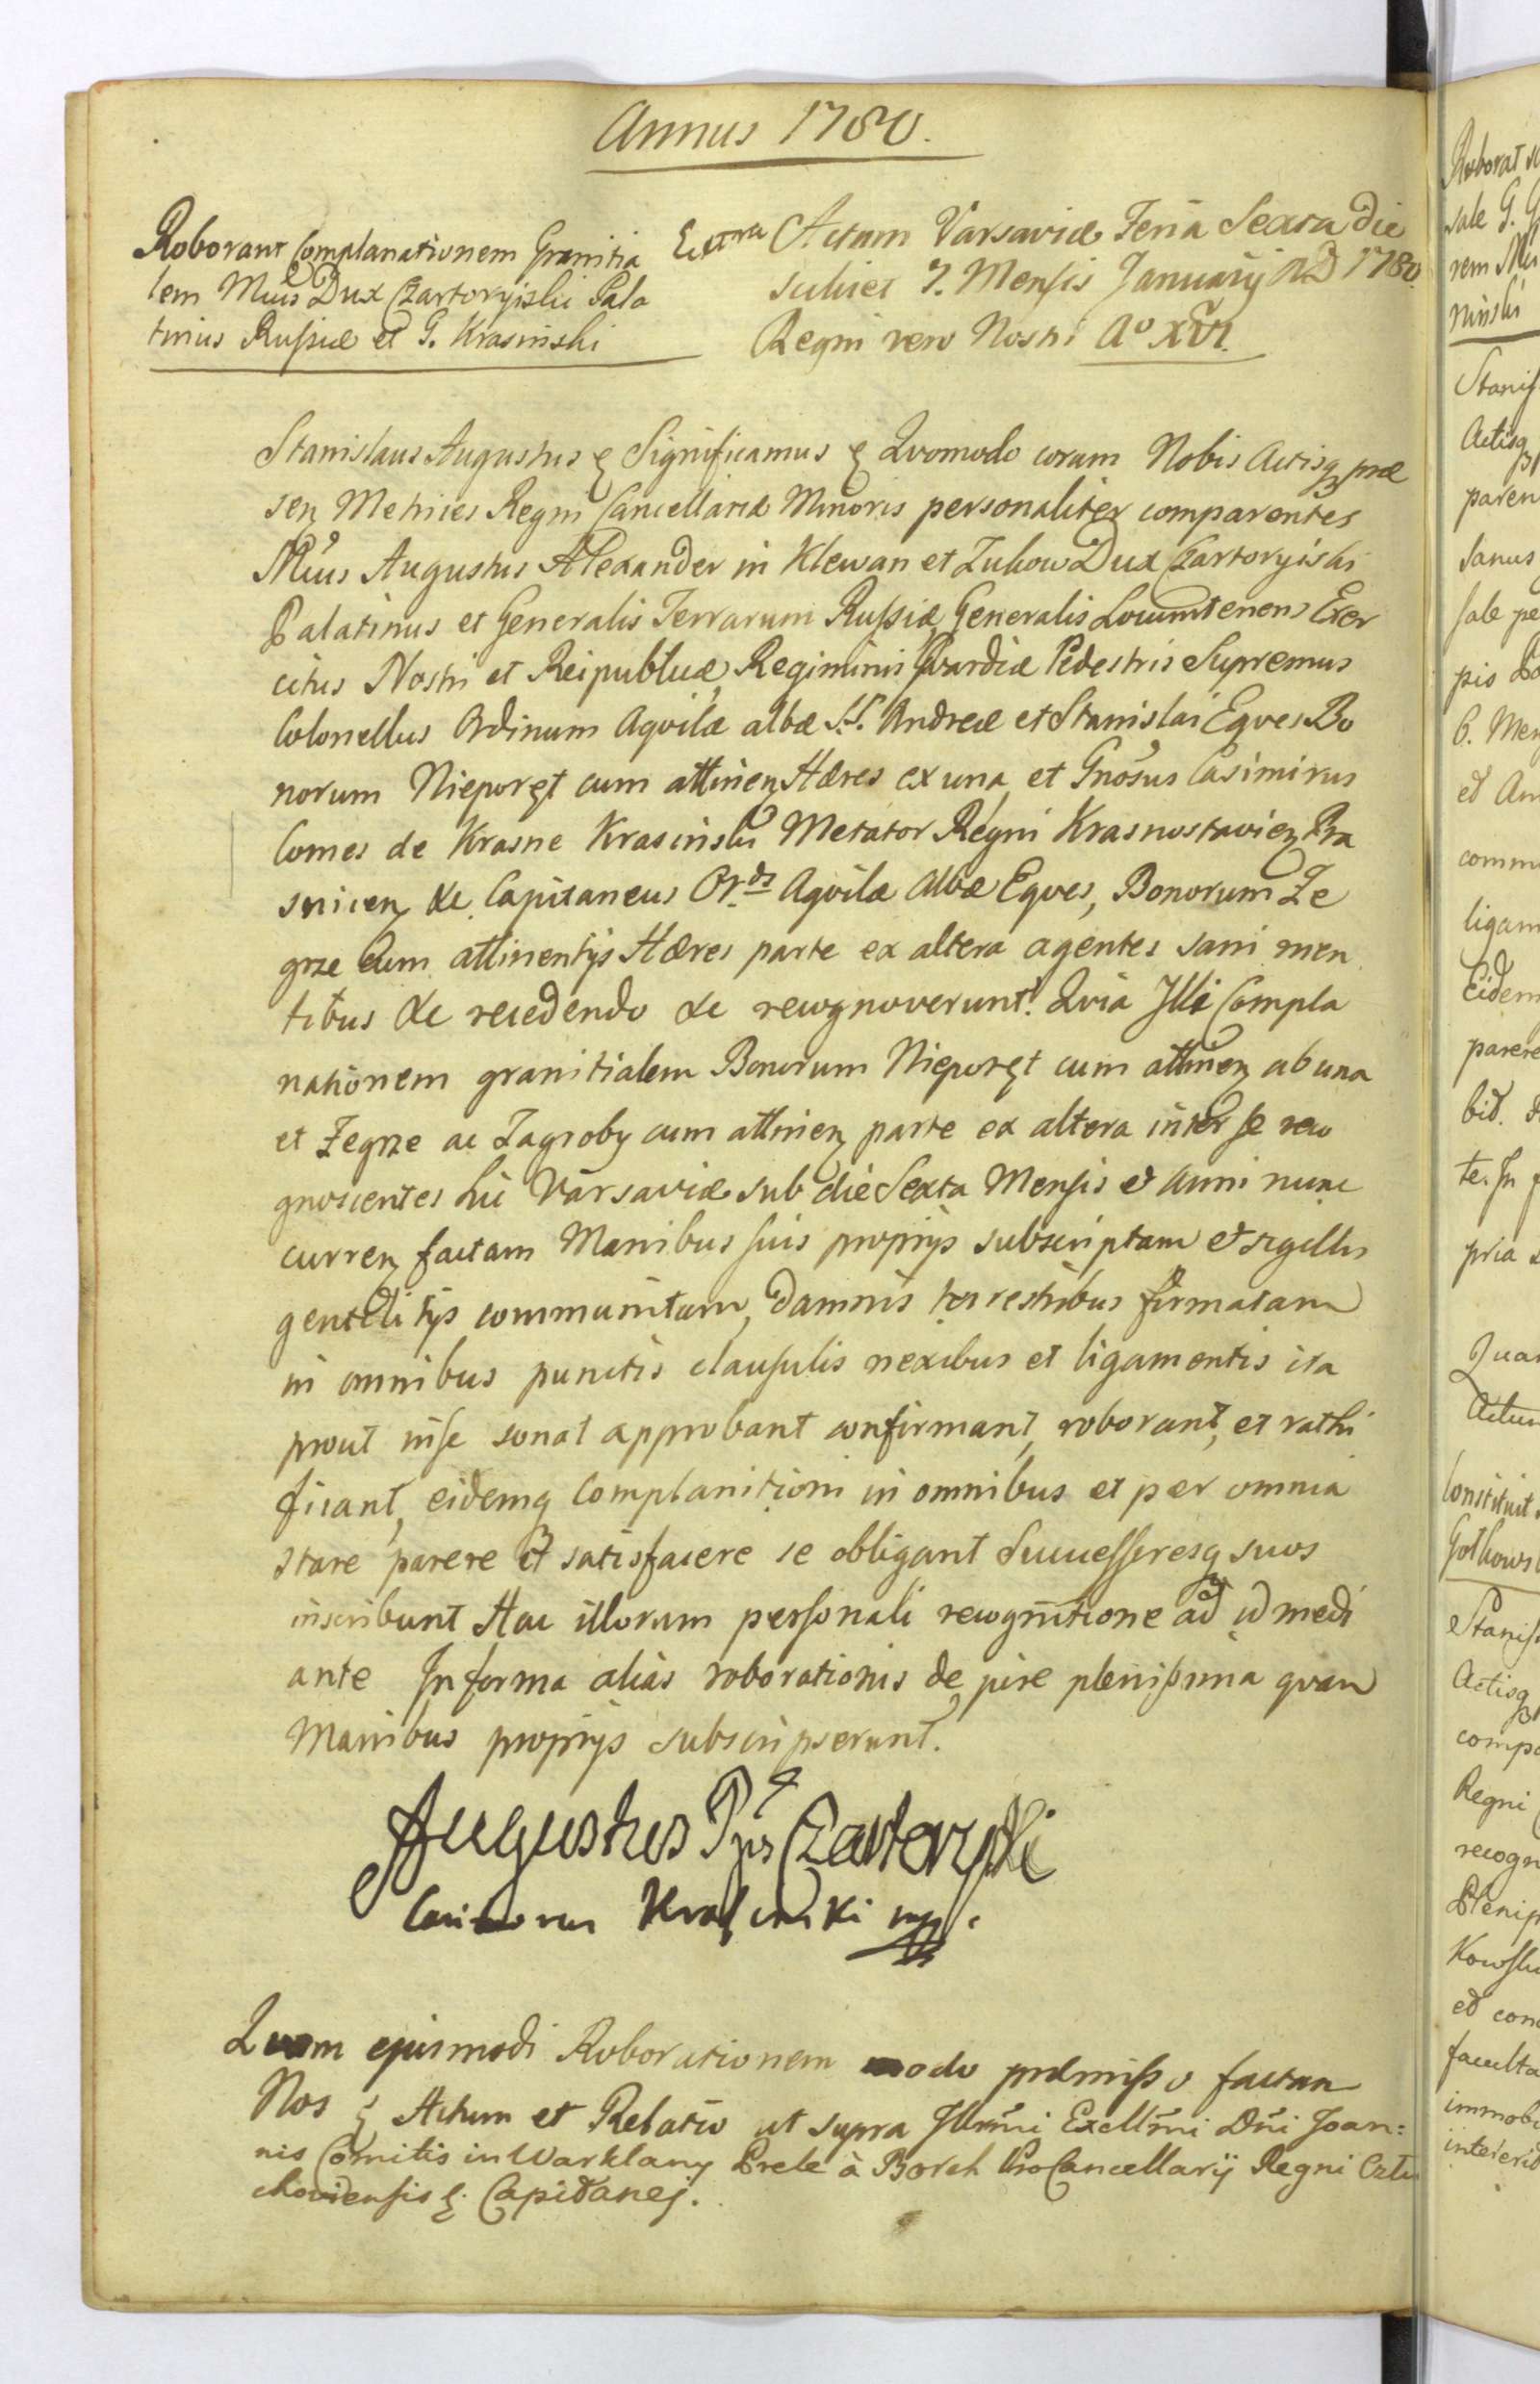 Annus 1780.
Roborant Complanationem Granitia
lem Mŭs Dux Czartoryiski Pala
tinus Russiæ et G. Krasinski
Extra
Actum Varsaviæ Feria Sexta die
scilicet 7. Mensis Januarij AD 1780.
Regni vero Nostri Aº XVI.
Stanislaus Augustus & Significamus & Quomodo coram Nobis Actisq præ
sen Metrices Regni Cancellariæ Minoris personaliter comparentes
Mŭs Augustus Alexander in Klewan et Zukow Dux Czartoryiski
Palatinus et Generalis Terrarum Russiæ, Generalis Locumtenens Exer
citus Nostri et Reipublicæ, Regiminis Gvardiæ Pedestris Supremus
Colonellus Ordinum Aqvilæ albæ S.S. Andreæ et Stanislai Eqves Bo
norum Nieporęt cum attinen Hæres ex una et Gnosus Casimirus
Comes de Krasne Krasinski Metator Regni Krasnostavien Pra
snicen &c. Capitaneus Or.ds Aqvilæ Albæ Eqves, Bonorum Ze
grze cum attinentijs Hæres parte ex altera agentes sani men
tibus &c recedendo &c recognoverunt. Qvia Illi Compla
nationem granitialem Bonorum Nieporęt cum attinen ab una
et Zegrze ac Zagroby cum attinen parte ex altera inter se reco
gnoscentes hic Varsaviæ sub die Sexta Mensis et Anni nunc
curren factam Manibus suis proprijs subscriptam et sigillis
gentilitijs communitam, damnis terrestribus firmatam
in omnibus punctis clausulis nexibus et ligamentis ita
prout in se sonat approbant confirmant, roborant, et rathi
ficant, eidemq Complanitioni in omnibus et per omnia
stare parere et satisfacere se obligant Successoresq suos
inscribunt Hac illorum personali recognitione ad id medi
ante In forma alias roborationis de jure plenissima qvam
Manibus proprijs subscripserunt.
Augustus Pps Czartoryski
Casimirus Krasinski mpp.
Quam ejusmodi Roborationem modo præmisso factam
Nos & Actum et Relatio ut supra Illrmi Excellmi Dni Joan:
nis Comitis in Warklany Prele à Borch ProCancellarij Regni Ostr
choviensis &. Capitanej.
Roborat
sale G. G
rem
ninski
Stanis
Actisq
paren
sanus
sale pe
pis Bo
6. Men
et An
comm
ligam
Eidem
parere
bid.
te. In
pria
Quam
Actum
Constituit
Golkows
Stanis
Actisq
compa
Regni
recogn
Plenip
Kowsk
et con
faculta
immobi
intererit